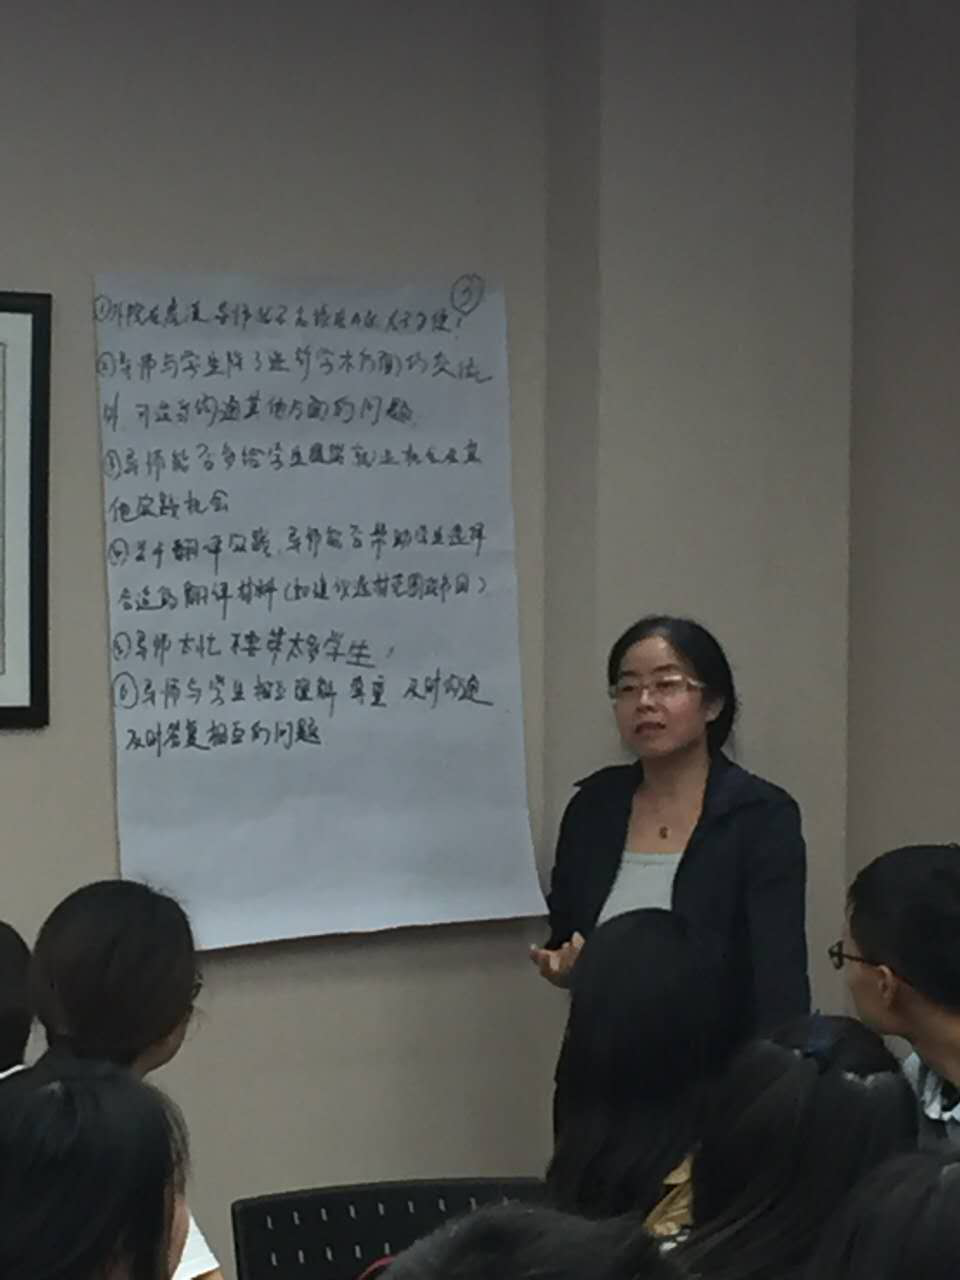 ③
①外院在虎溪 导师
②导师与学生除了进行学术方面的交流
外 可适当沟通其他方面的问题
③导师能否多给学生提供就业机会及其
他实践机会
④关于翻译实践,导师能否帮助学生选择
合适的翻译材料(如建议选材范围或书目)
⑤导师太忙 不要带太多学生!
⑥导师与学生相互理解 尊重 及时沟通
及时答复相互的问题